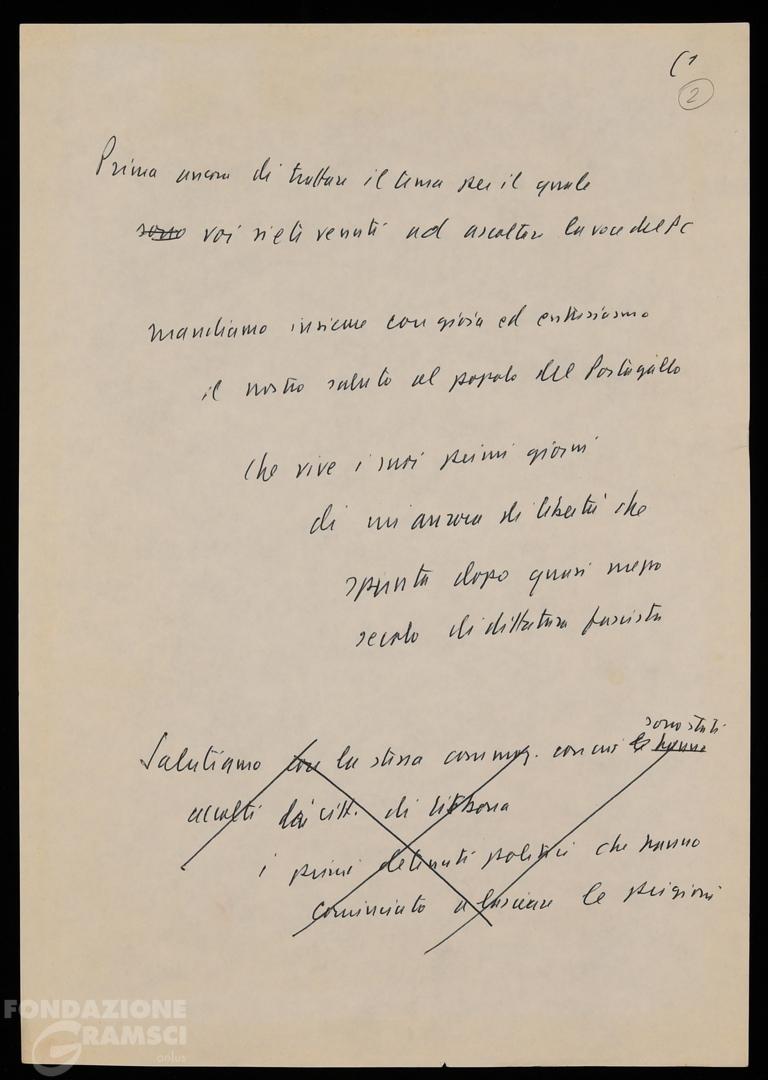 (1
2
Prima ancora di trattare il tema per il quale
sono voi siete venuti ad ascoltare la voce del PC
mandiamo insieme con gioia ed entusiasmo
il nostro saluto al popolo del Portogallo
che vive i suoi primi giorni
di un'aurora di libertà che
spunta dopo quasi mezzo
secolo di dittatura fascista
sono stati
Salutiamo con la stessa commoz. con cui le hanno
accolti dai citt. di Lisbona
i primi detenuti politici che hanno
cominciato a lasciare le prigioni
FONDAZIONE
GRAMSCI
onlus